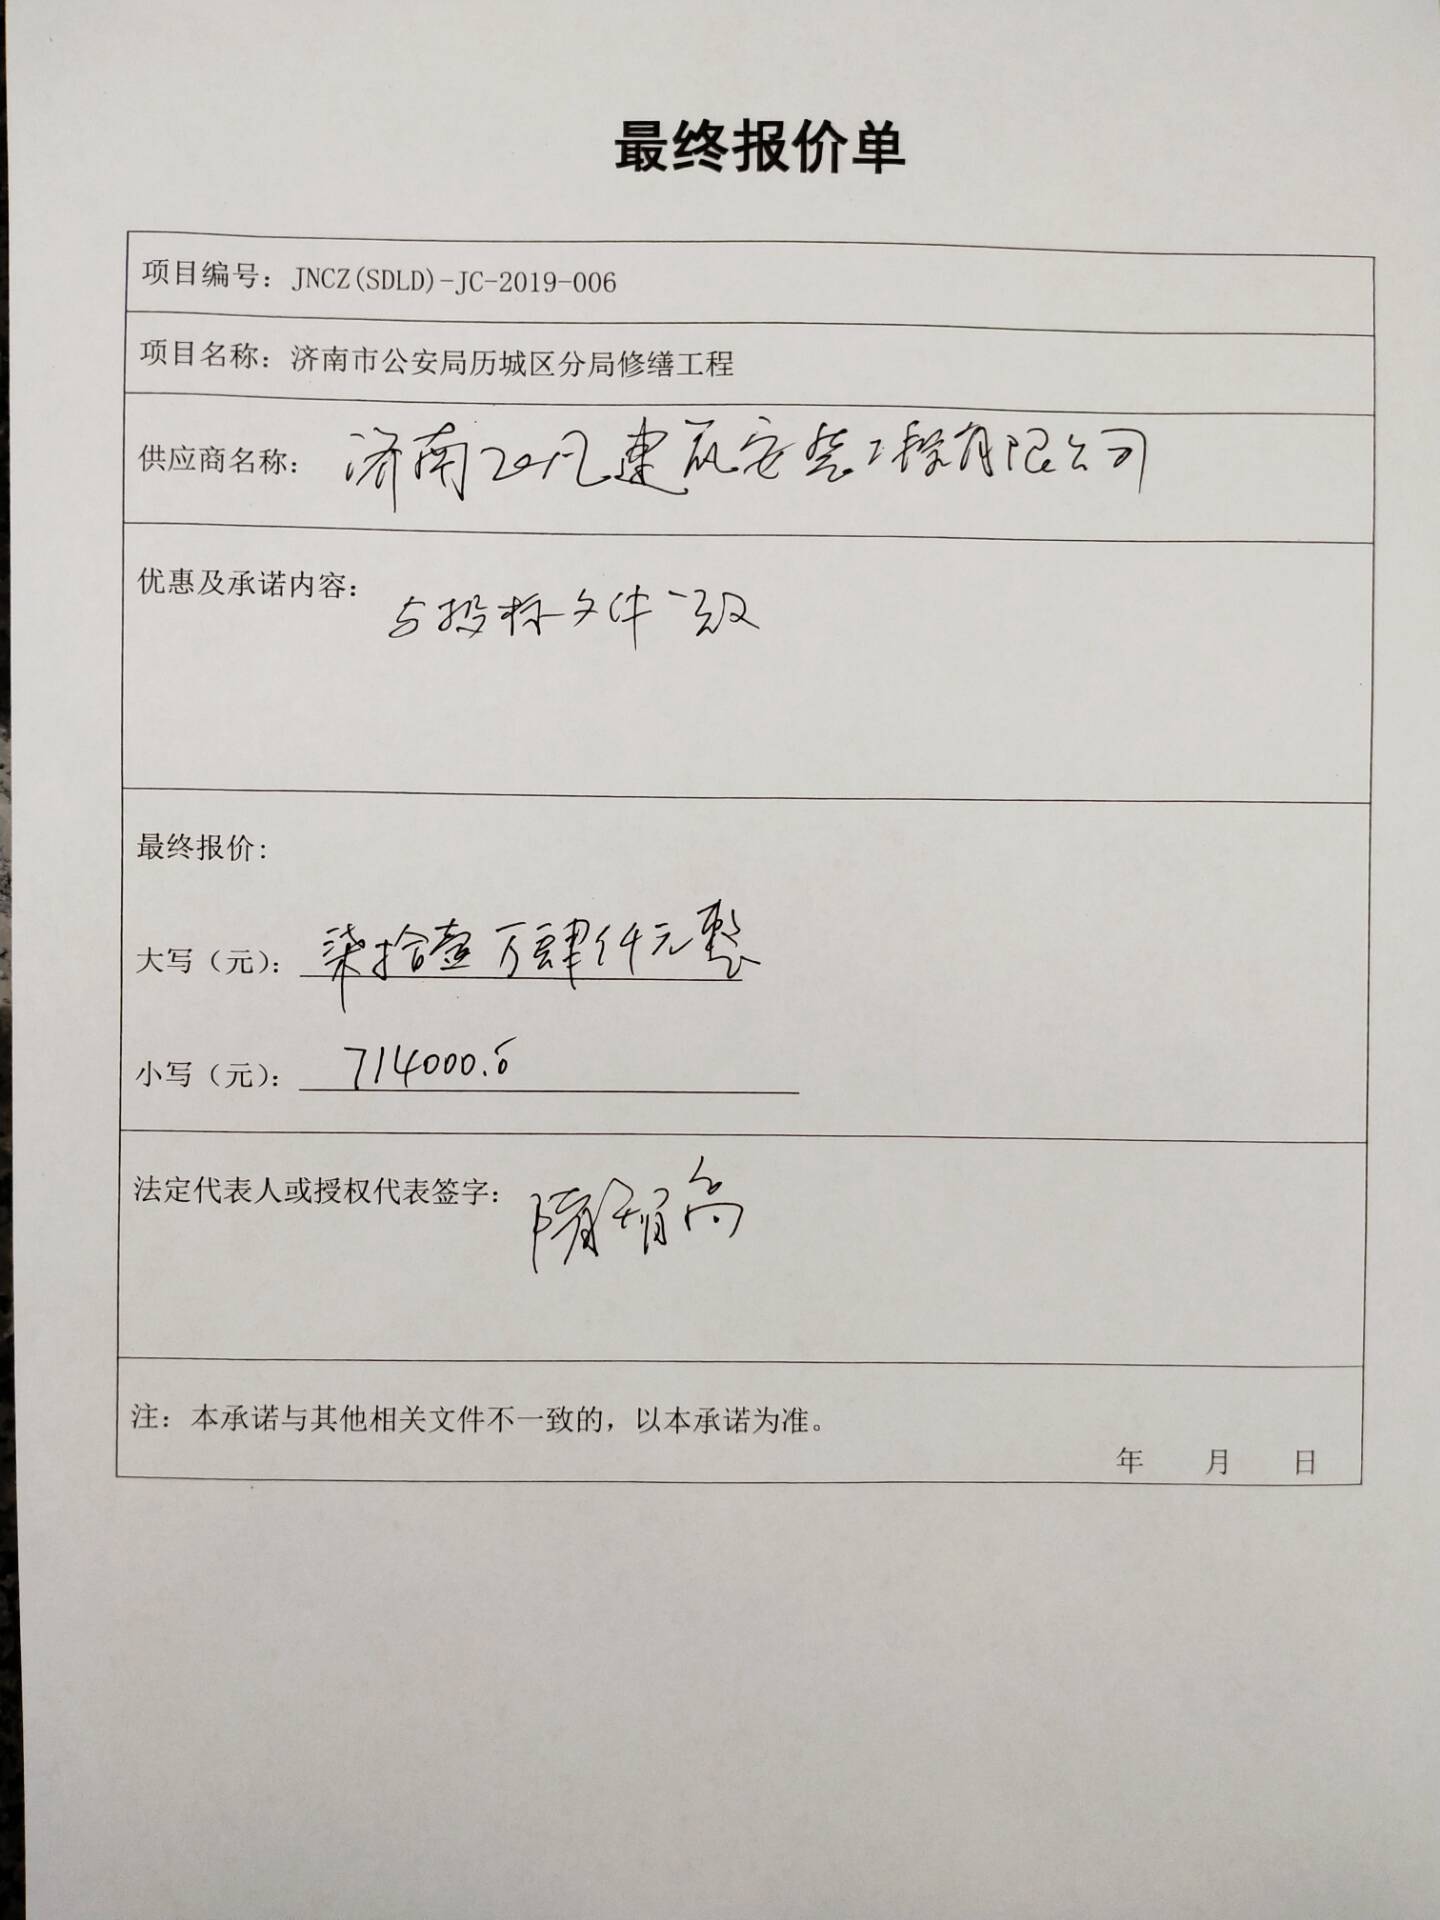 最终报价单
项目编号：JNCZ(SDLD)-JC-2019-006
项目名称：济南市公安局历城区分局修缮工程
供应商名称：济南建筑安装工程有限公司
优惠及承诺内容：与投标文件一致
最终报价：
大写（元）：柒拾壹万肆仟元整
小写（元）：714000.0
法定代表人或授权代表签字：隋
注：本承诺与其他相关文件不一致的，以本承诺为准。
年 月 日